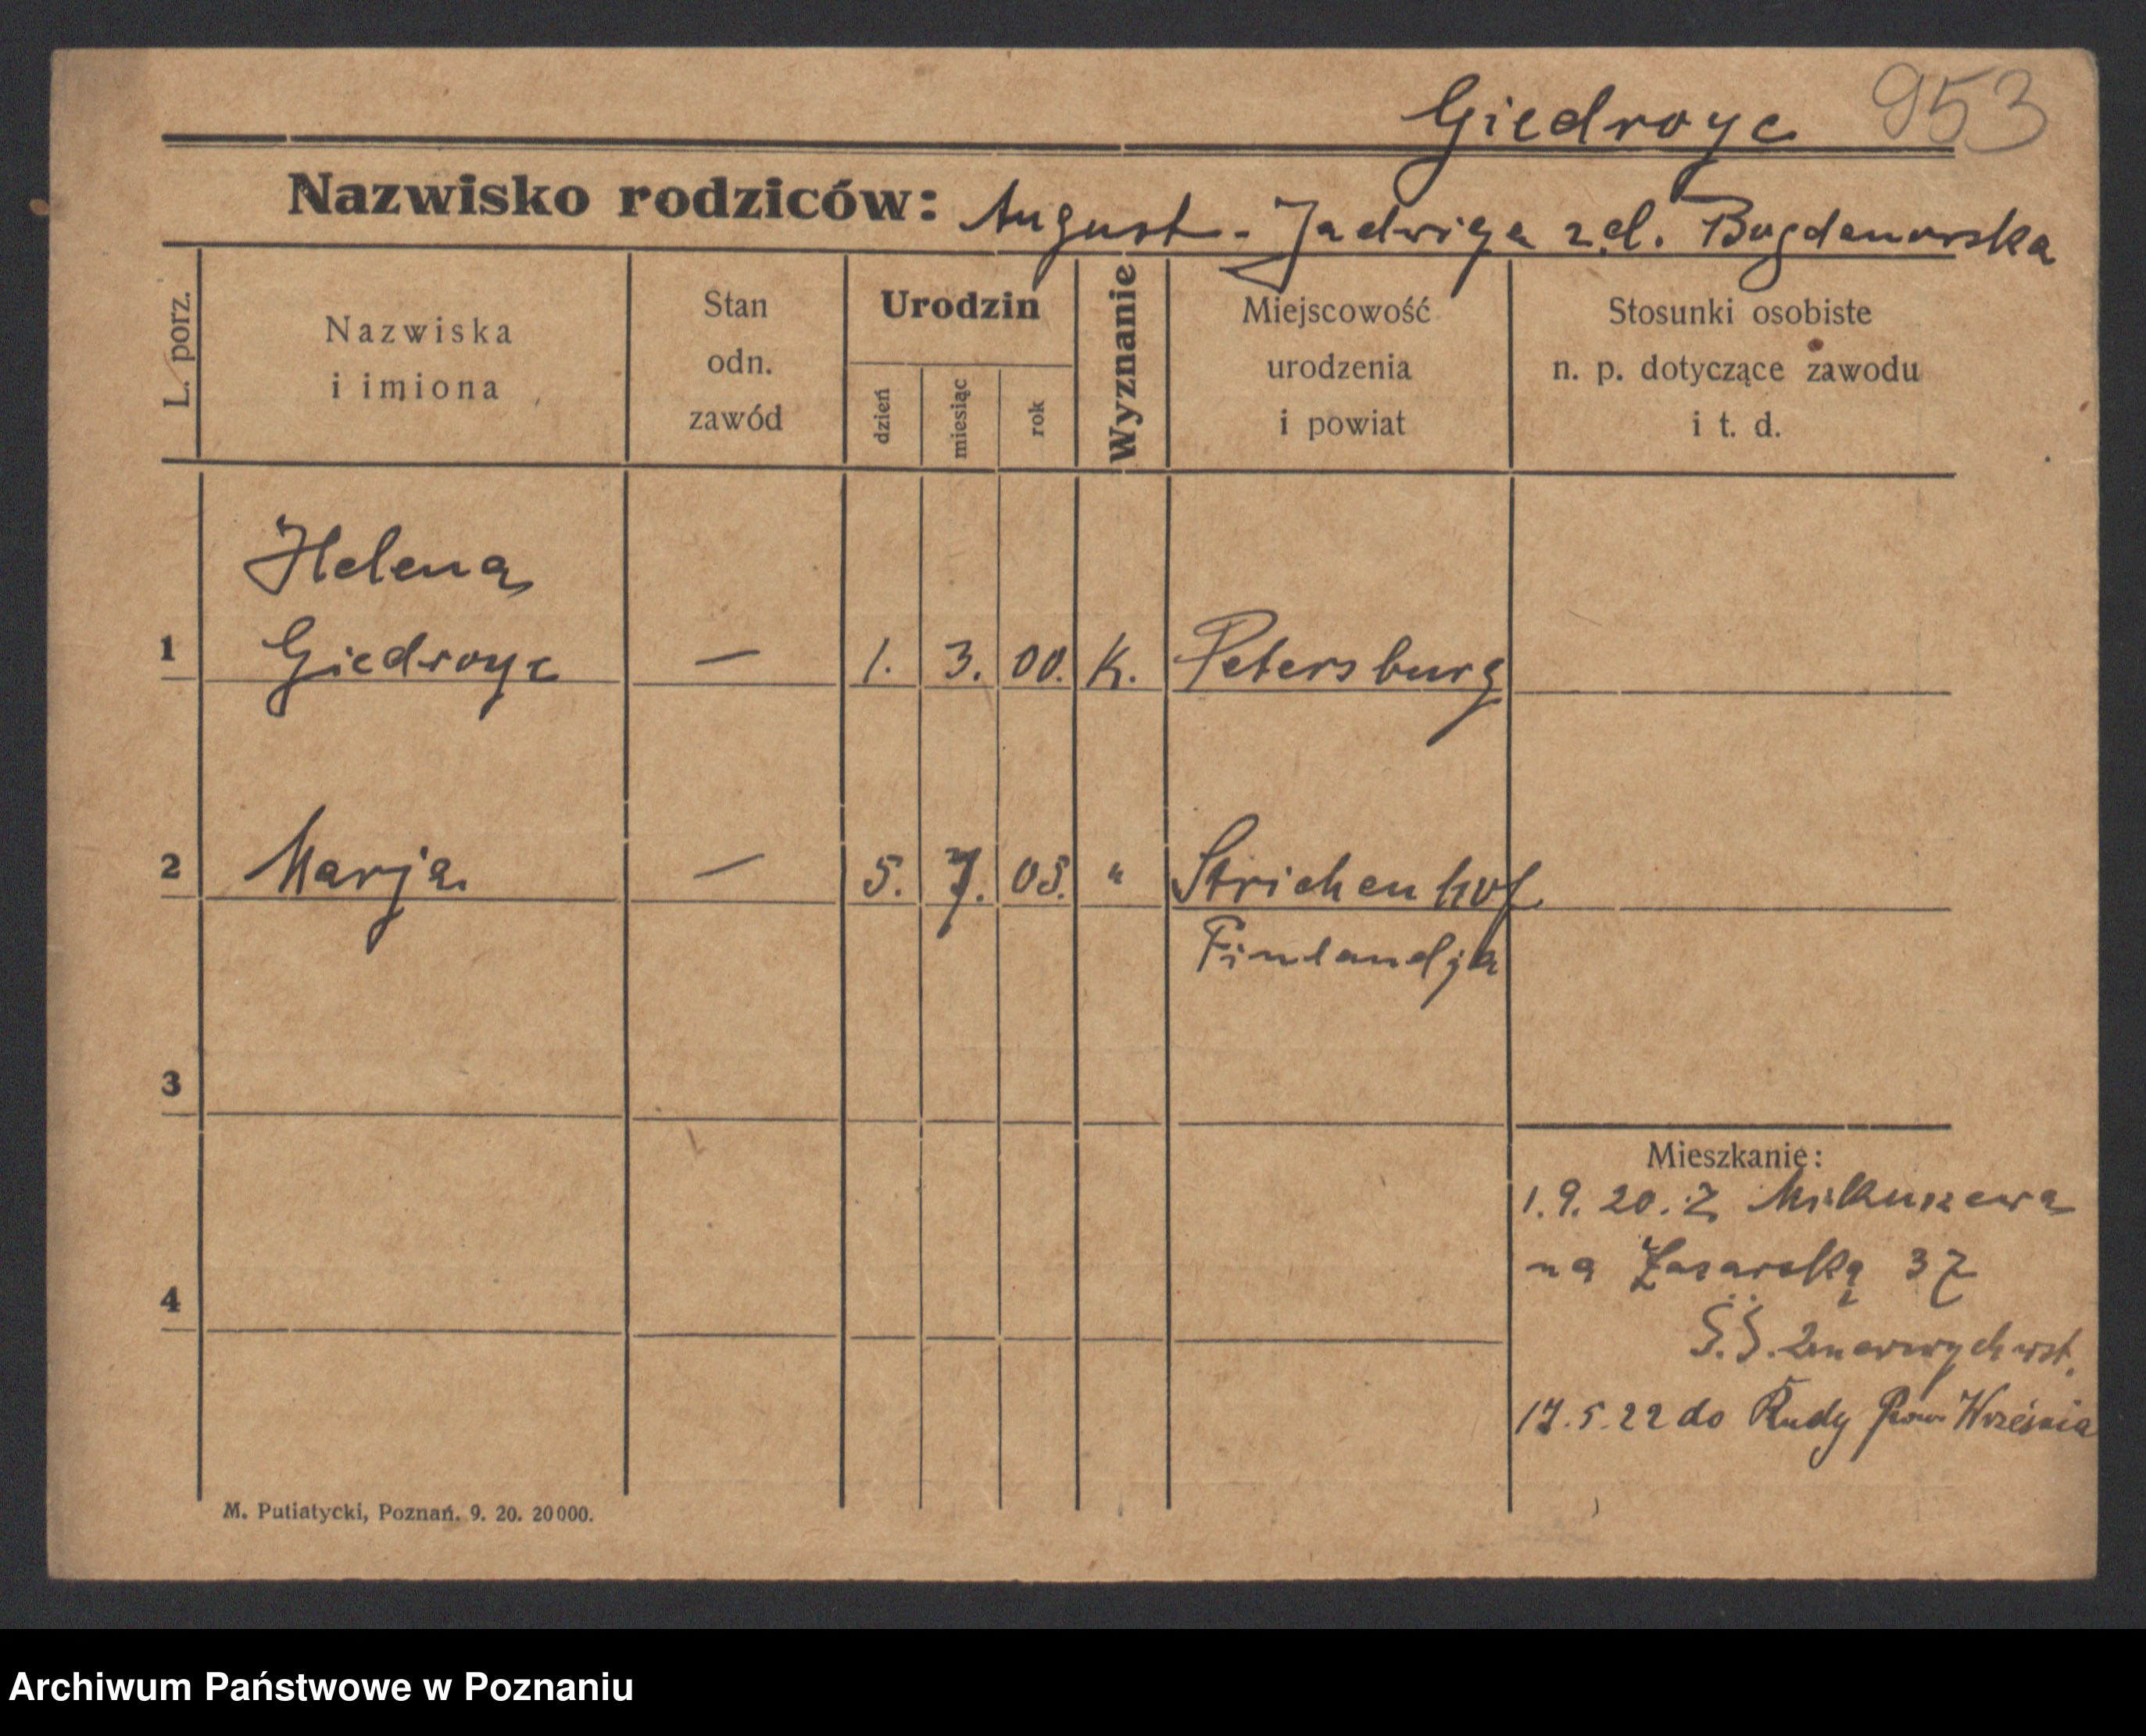 Giedroyc 953
Nazwisko rodziców: August - Jadwiga z d. Bogdanowska
L. porz.
Nazwiska
i imiona
Stan
odn.
zawód
Urodzin
dzień
miesiąc
rok
Wyznanie
Miejscowość
urodzenia
i powiat
Stosunki osobiste
n. p. dotyczące zawodu
i t. d.
Helena
1 Giedroyc — 1. 3. 00. K. Petersburg
2 Marja — 5. 7. 05. " Strichenhof
Finlandja
3
Mieszkanie:
1. 9. 20. Z Mikuszewa
na Łazarską 37
4
Ś. Ś.
17. 5. 22 do Rudy pow Września
M. Putiatycki, Poznań. 9. 20. 20000.
Archiwum Państwowe w Poznaniu